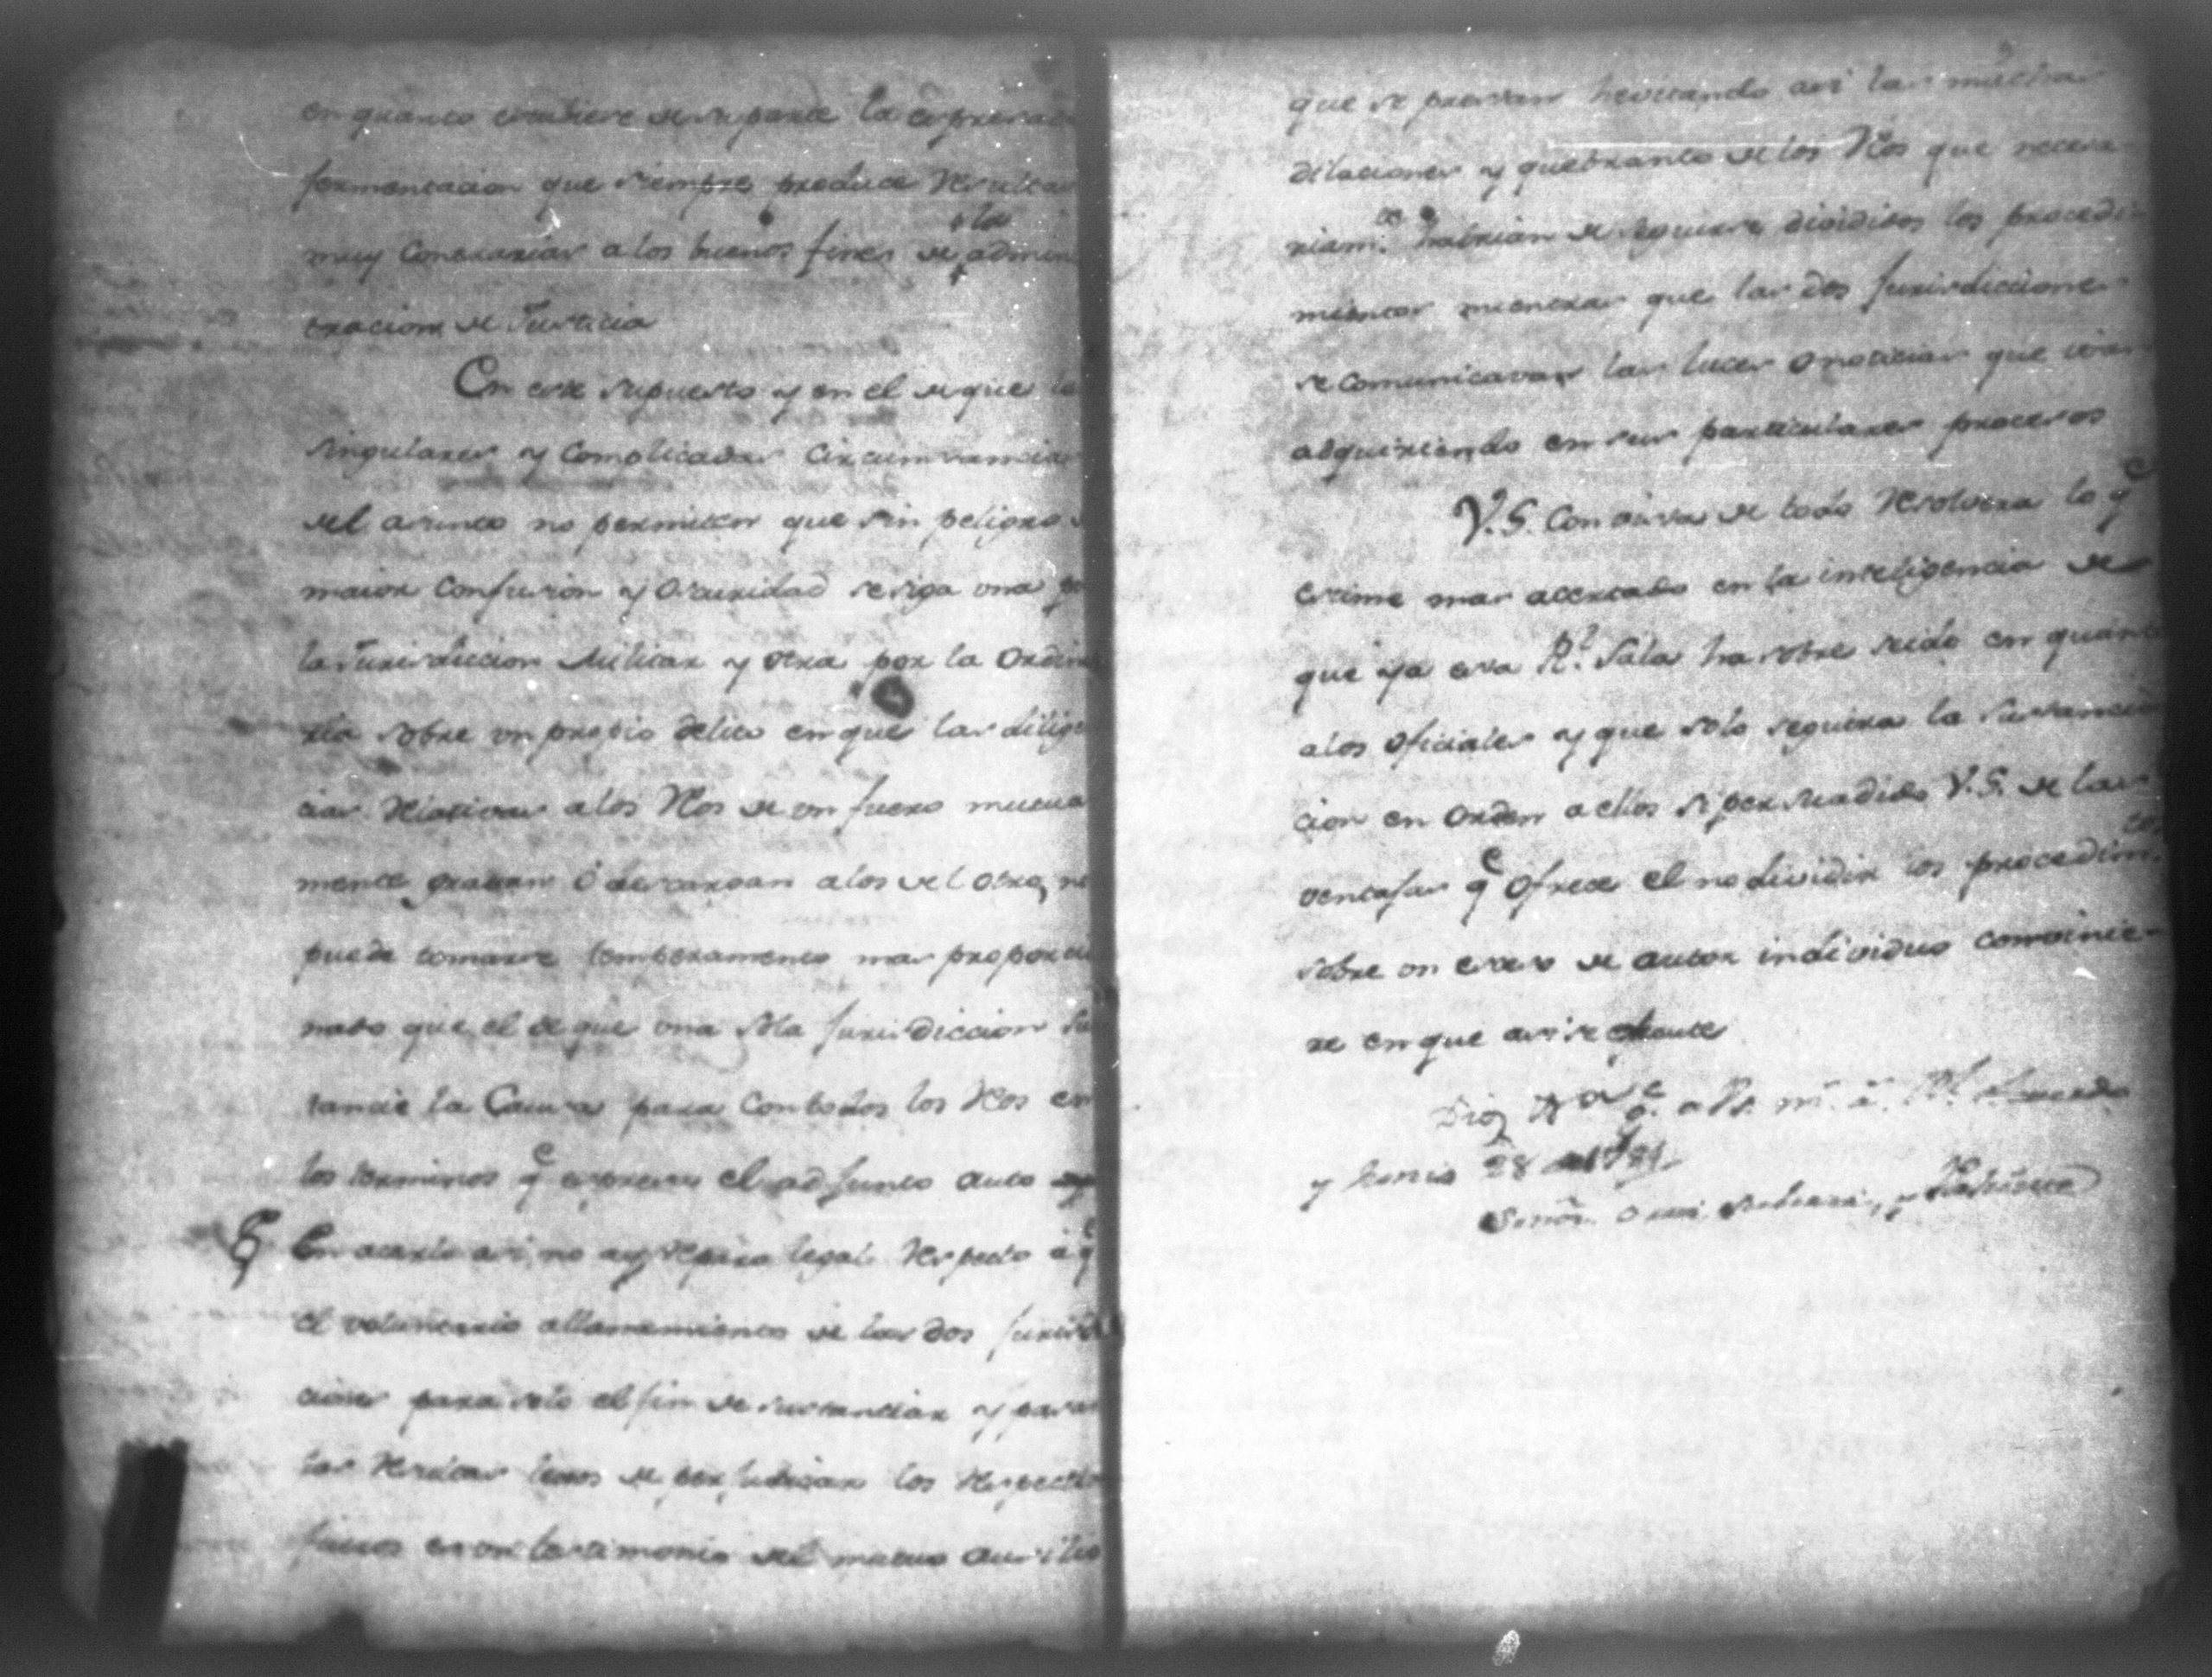 en quanto estubiere de su parte la expresada
fermentacion que siempre produce Resultas
muy Contrarias a los buenos fines de la admin
tracion de Justicia
En este supuesto y en el de que las
singulares y Complicadas Circunstancias
del asunto no permiten que sin peligro
maior Confusion y Oscuridad se siga una po
la Jurisdiccion Militar y otra por la Ordina
ria sobre un propio delito en que las dilige
cias Relativas a los Reos de un fuero mutua
mente gravan ó descargan a los del otro, no
puede tomarse temperamento mas proporcio
nado que el de que una sola Jurisdiccion Su
tancie la Causa para Con todos los Reos en
los terminos q.e expresa el adjunto auto
En acerlo asi, no ay Reparo legal Respecto á q.e
el voluntario allanamiento de las dos Jurisdi
ciones para solo el fin de sustanciar y pasar
las Resultas lexos de perjudicar los Respectivos
fueros es un testimonio del mutuo auxilio
que se prestan hevitando asi las muchas
dilaciones y quebranto de los Reos que necesa
riam.te habrian de seguirse divididos los procedi
mientos mientras que las dos Jurisdicciones
se comunicavan las luces o noticias que ivan
adquiriendo en sus particulares procesos
V.S. Con vista de todo Resolvera lo q.e
estime mas acertado en la inteligencia de
que ya esa R.l Sala ha sobre seido en quanto
a los oficiales y que solo seguira la Sustancia
cion en Orden a ellos si persuadido V.S. de las
ventajas q.e Ofrece el no dividir los procedim.tos
sobre un exceso de autor individuo comvinie-
re en que asi se execute
Dios a V.S. m.s a.s R.l Acuerdo
y Junio 28 de
Señor y